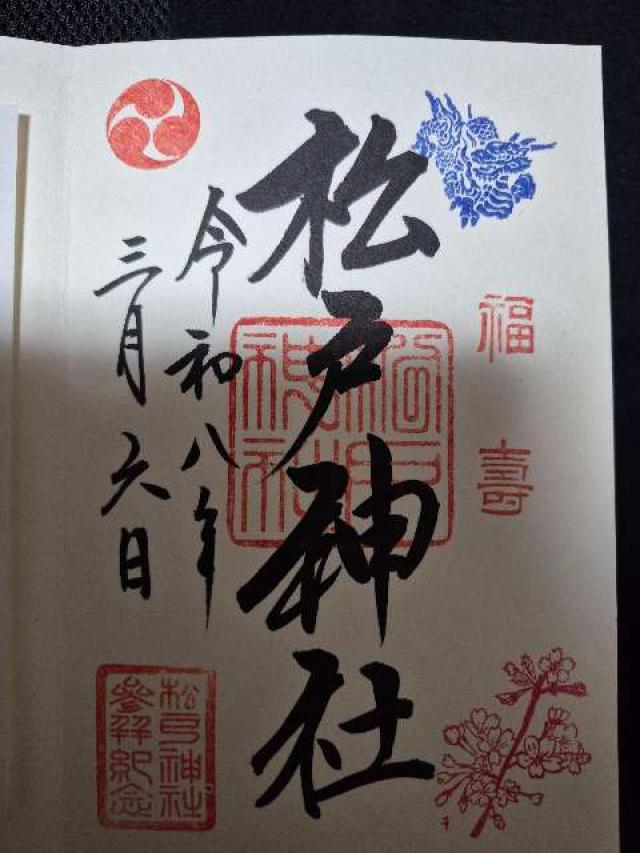 福壽
松戸神社
松戸神社
令和八年
三月六日
松戸神社
參拜紀念